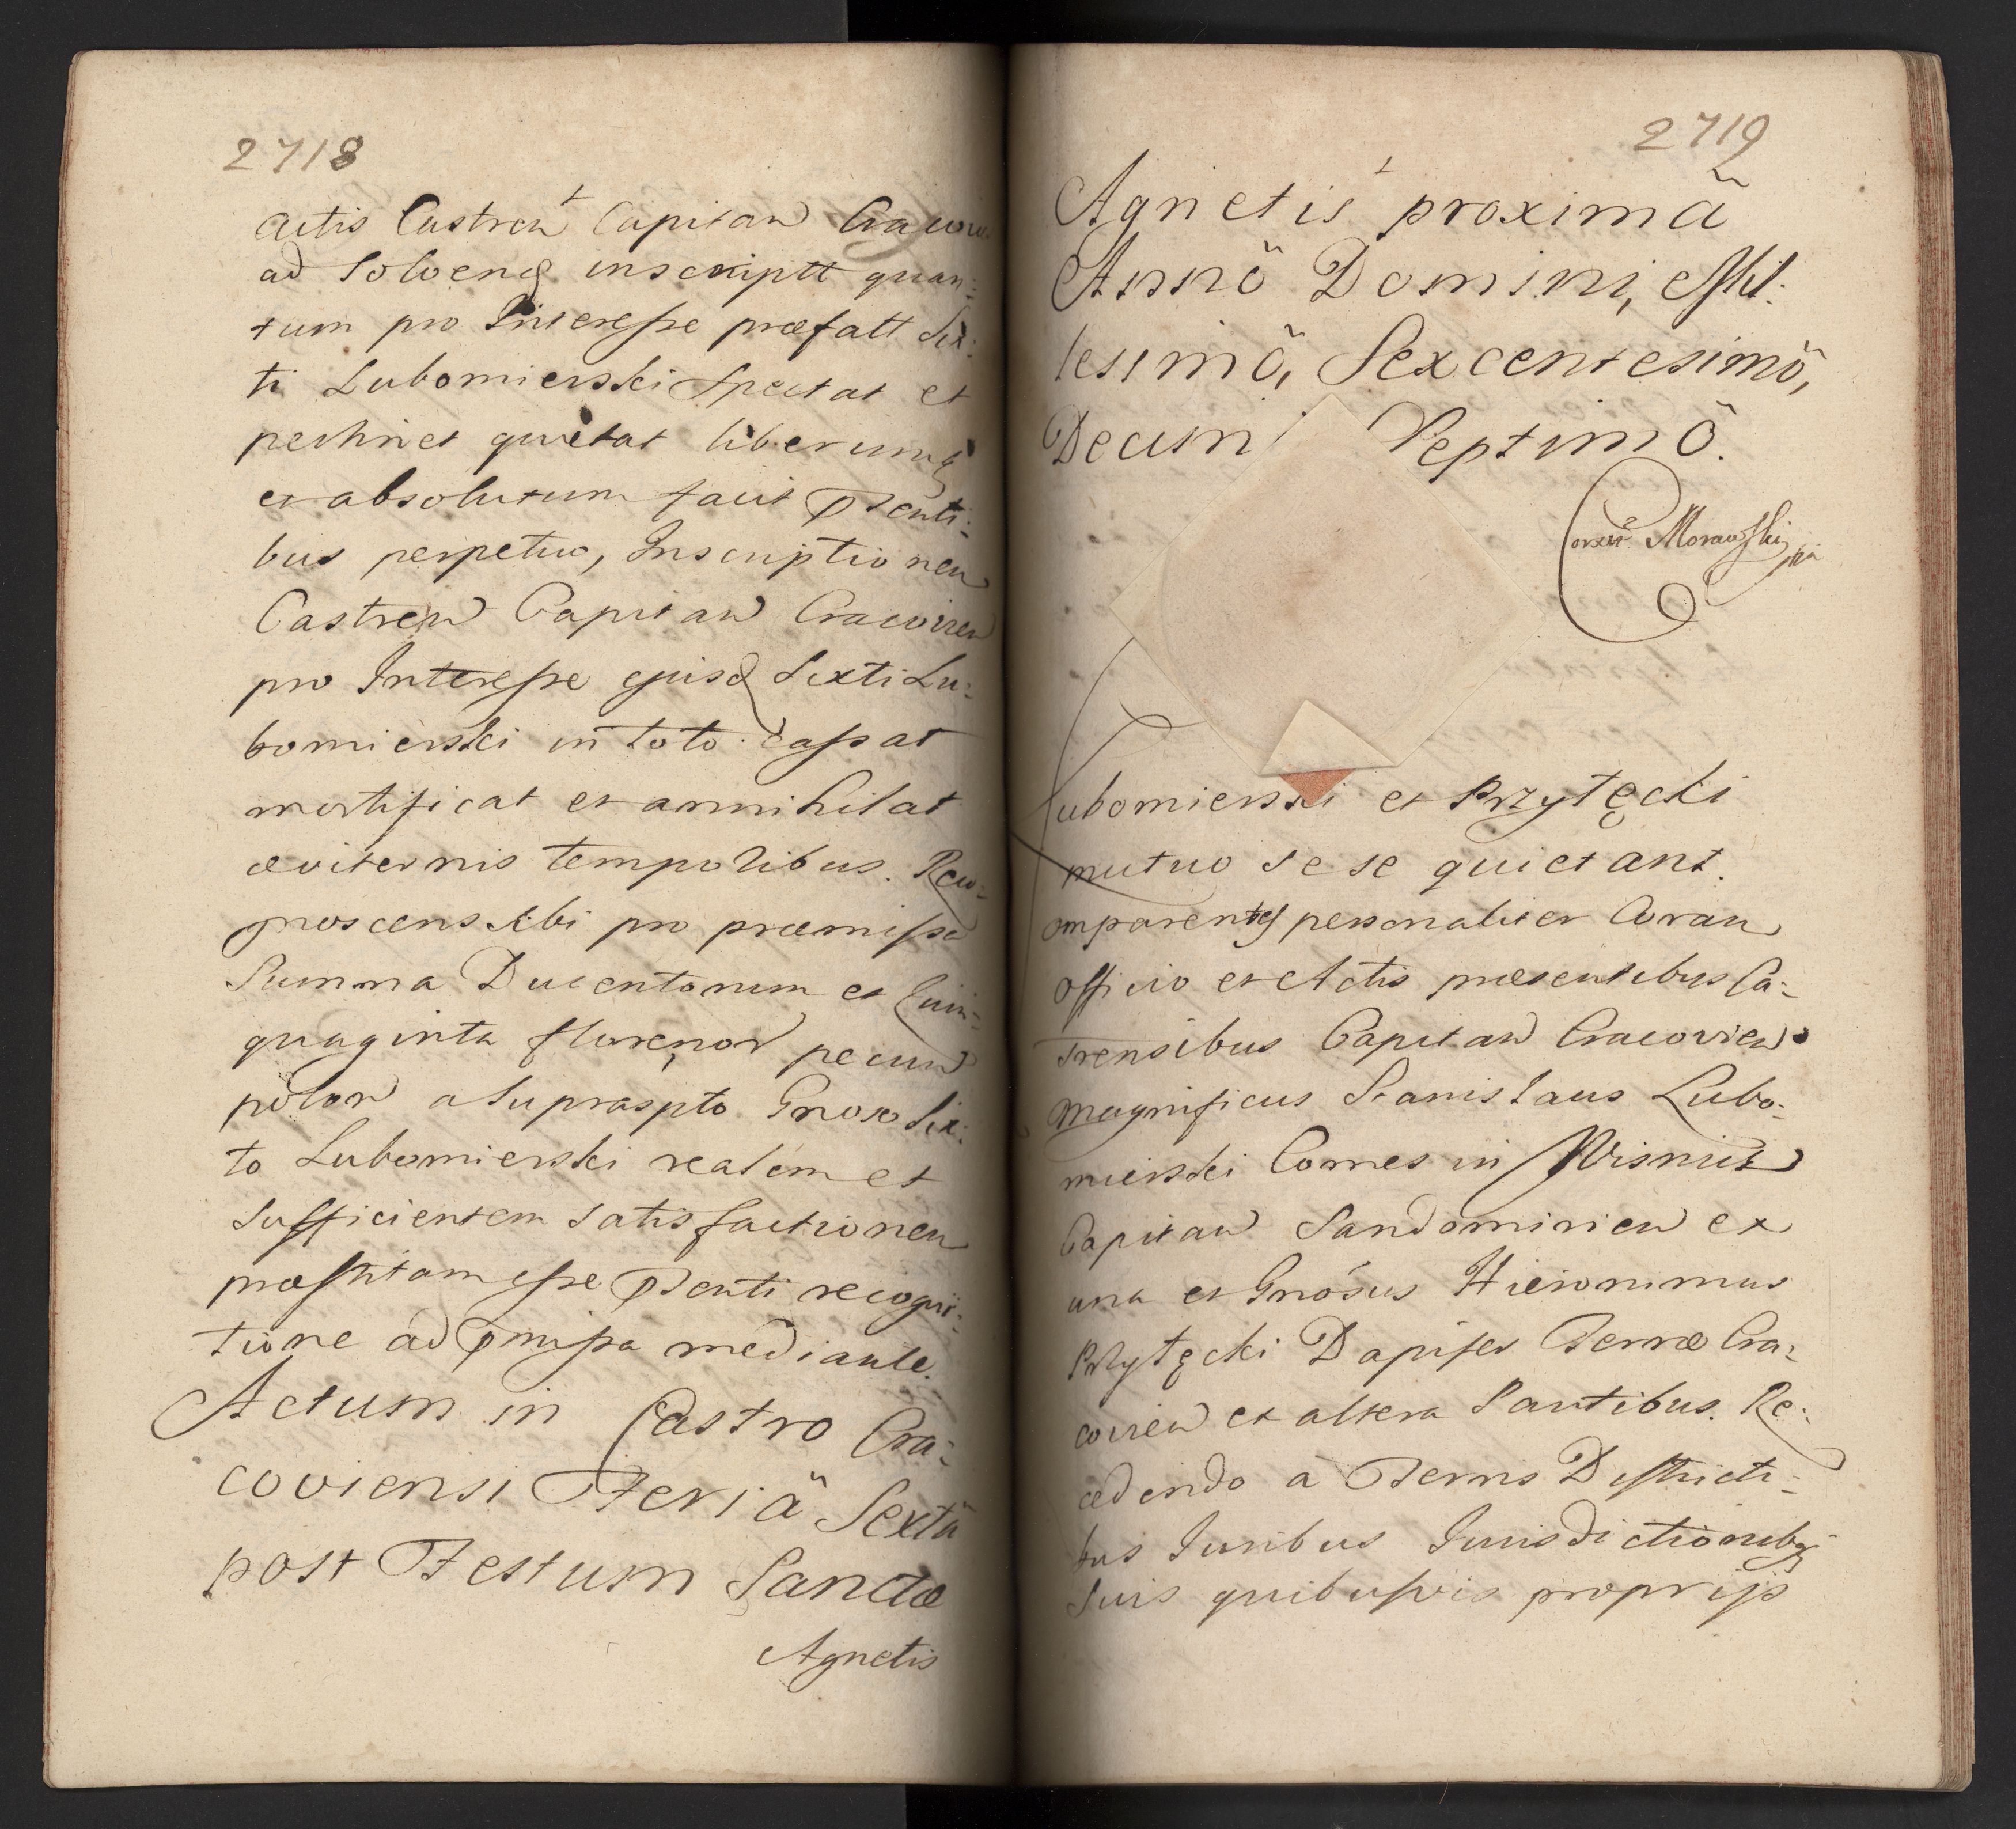 2718
actis Castren Capitan Cracovien
ad Solvend inscriptt quan:
tum pro Interesse præfatt Six:
ti Lubomierski Spectat et
pertinet quietat liberumq
et absolutum facit Pnti:
bus perpetuo, Inscriptionem
Castren Capitan Cracovien
pro Interesse ejusd Sixti Lu:
bomierski in toto cassat
mortificat et annihilat
æviternis temporibus. Reco:
gnoscens sibi pro præmissa
Summa Ducentorum et Quin:
quaginta florenor pecun
polon a Supraspto Gnoso Six:
to Lubomierski realem et
Sufficientem Satisfactionem
præstitam esse Pnti recogni:
tione ad Pmissa mediante.
Actum in Castro Cra:
coviensi Feriâ Sextâ
post Festum Sanctæ
Agnetis
2719
Agnetis proximâ
Annô Domini, Mil:
lesimô, Sexcentesimô,
Decim Septimô.
Correxit Morawski mp
Lubomierski et Przyłęcki
mutuo se se quietant.
omparentes personaliter Coram
Officio et Actis præsentibus Ca:
strensibus Capitan Cracovien
Magnificus Stanislaus Lubo:
mierski Comes in Wisnicz
Capitan Sandomirien ex
una et Gnosus Hieronimus
Przyłęcki Dapifer Terræ Cra:
covien ex altera Partibus. Re:
cedendo a Terris Districti:
bus Juribus Jurisdictionibq
Suis quibusvis proprijs